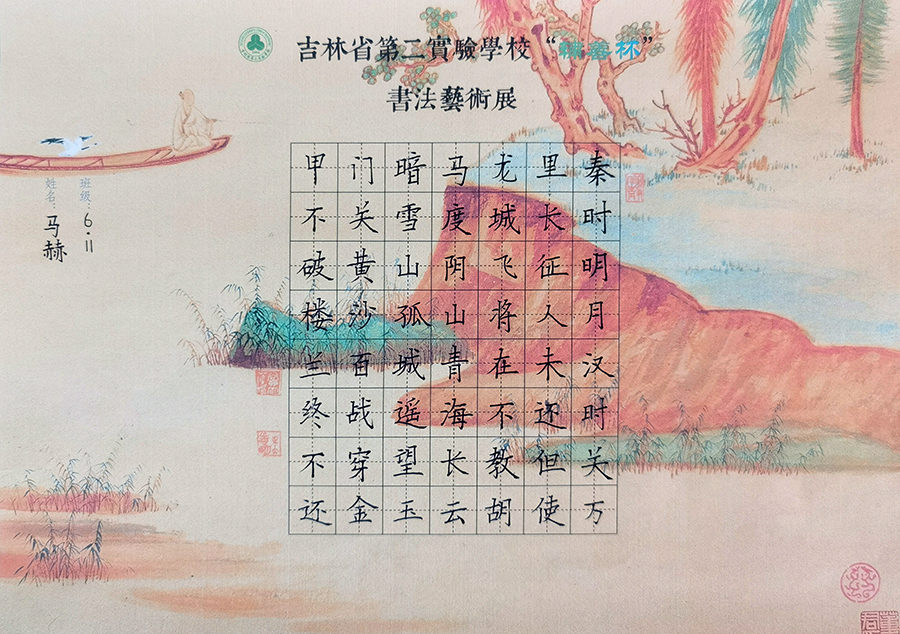 吉林省第二實驗學校“翰墨杯”
書法藝術展
班级：6.11
姓名：马赫
秦时明月汉时关万
里长征人未还但使
龙城飞将在不教胡
马度阴山青海长云
暗雪山孤城遥望玉
门关黄沙百战穿金
甲不破楼兰终不还